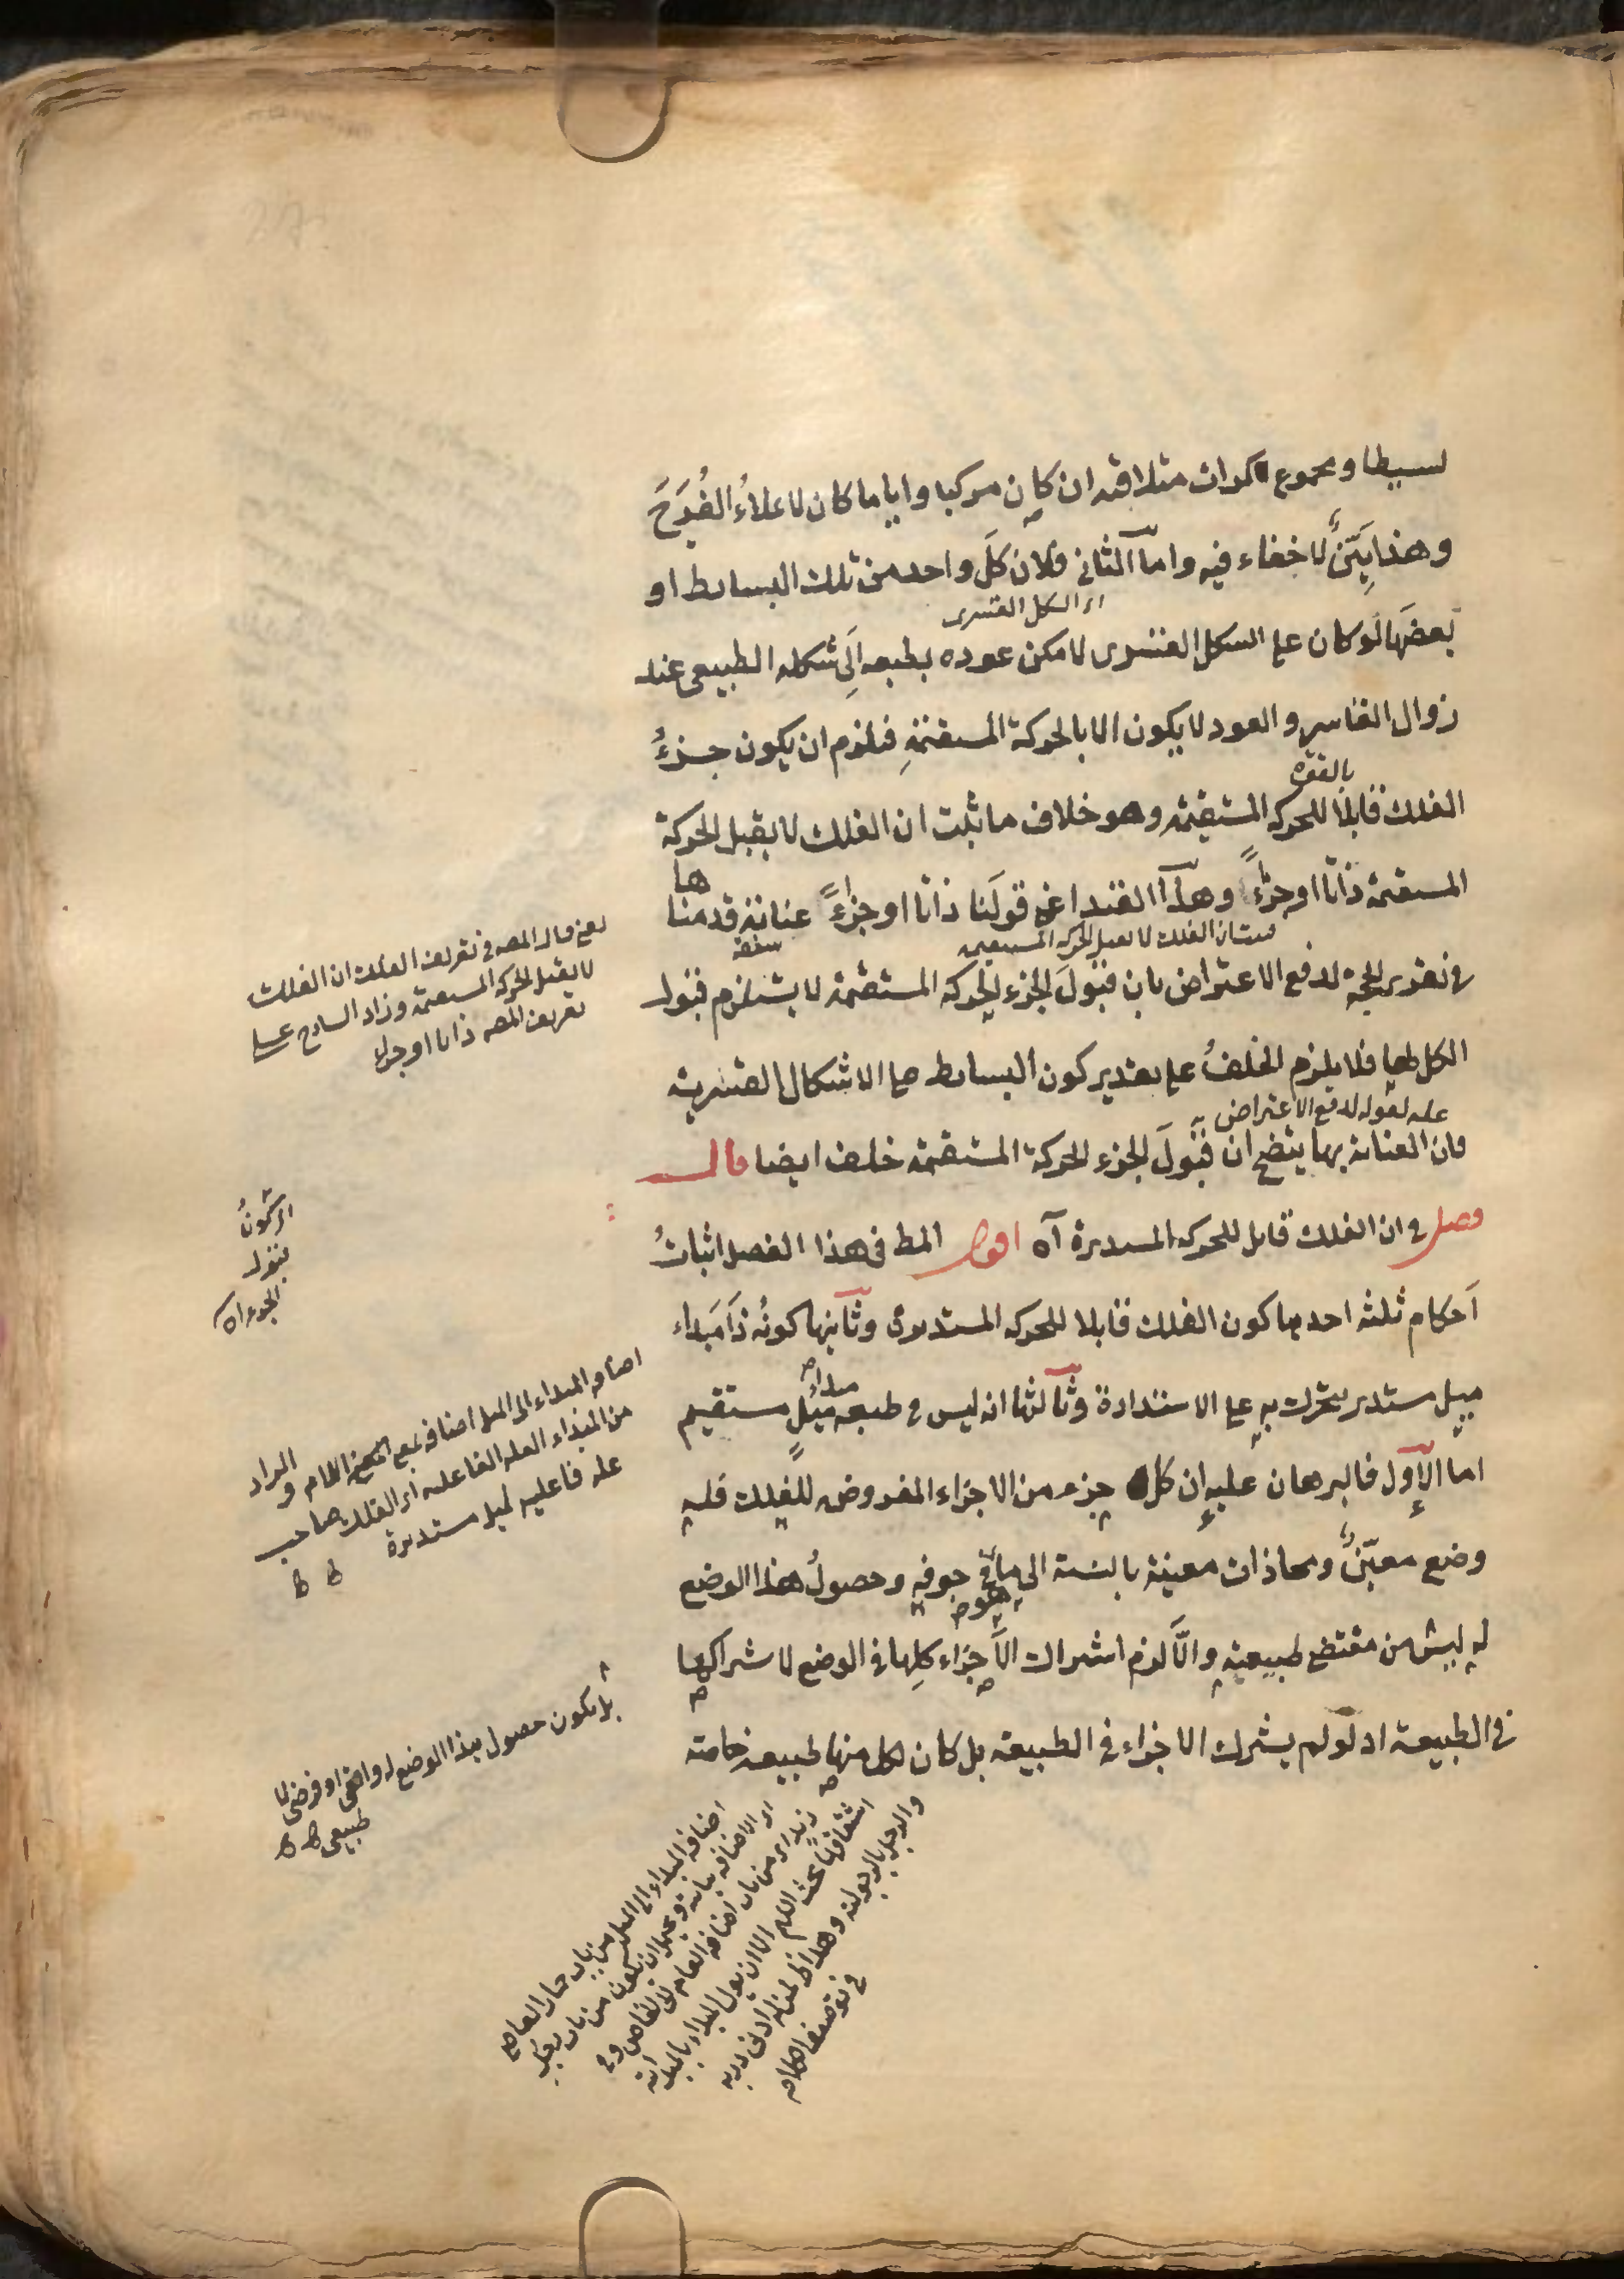 بسيطا ومجموع كرات متلاقية ان كان مركبا وايا ما كان لا علاءُ القُدَحَ
وهذا بَيِّنٌ لا خفاء فيه واما الثانى فلان كلَ واحد من تلك البسائط او
اى الشكل القسرى
بعضَها لو كان على الشكل القسرى لامكن عوده بطبعه اِلَى شكله الطبيعى عند
زوال القاسر والعود لا يكون الا بالحركة المستقيمةِ فيلزم ان يكون جزءُ
بالقوة
الفلك قابلا للحركة المستقيمة وهو خلاف ما ثبت ان الفلك لا يقبل الحركة
المستقيمة ذاتا او جزءً وهذا القيد اعنى قولَنا ذاتا او جزءً عناية قدمناها
الفلك لا يقبل الحركة المستقيمة
فى تقرير الحجة لدفع الاعتراض بان قبولَ الجزء للحركة المستقيمة لا يستلزم قبول
الكل لها فلا يلزم الخلفُ على تقدير كون البسائط على الاشكال القسرية
علة لقوله لدفع الاعتراض
فان العناية بها يتضح ان قبولَ الجزء للحركة المستقيمة خلف ايضا قال
فصل فى ان الفلك قابل للحركة المستديرة آه اقول المط فى هذا الفصل اثباتُ
اَحكام ثلثه احديها كون الفلك قابلا للحركة المستديرة وثانيها كونُه ذَا مَبداء
مبداء
ميل مستدير يتحرك به على الاستدارة وثالثها انه ليس فى طبعه ميلٍ مستقيم
اما الاول فالبرهان عليه ان كل جزء من الاجزاء المفروضه للفلك فله
وضع معيّنٌ ومحاذات معينة بالنسبة الى ما فى جوفه وحصولُ هذا الوضع
له ليس من مقتضى طبيعته والّا لزم اشتراك الاَجزاء كلِها فى الوضع لاشتراكها
فى الطبيعة اذ لو لم يشترك الاجزاء فى الطبيعة بل كان لكل منها طبيعه خاصة
يعنى قال المصه فى تعريف الفلك ان الفلك
لا يقبل الحركة المستقيمة وزاد الشارح على
تعريف المصه ذاتا او جزء
اى كونُ
قبول
الجزء اه
اضافة المبداء الى الميل اضافة بمعنى اللام والمراد
من المبداء العلة الفاعلة اى الفلك صاحب
علة فاعليه لميل مستديرة
بل يكون حصول هذا الوضع له
طبيعى
اضافة المبداء الى الميل من باب
اى الاضافة بيانية ويحتمل ان يكون من باب
من باب اضافة العام الى الخاص
اللهم الا ان يؤل المبداء